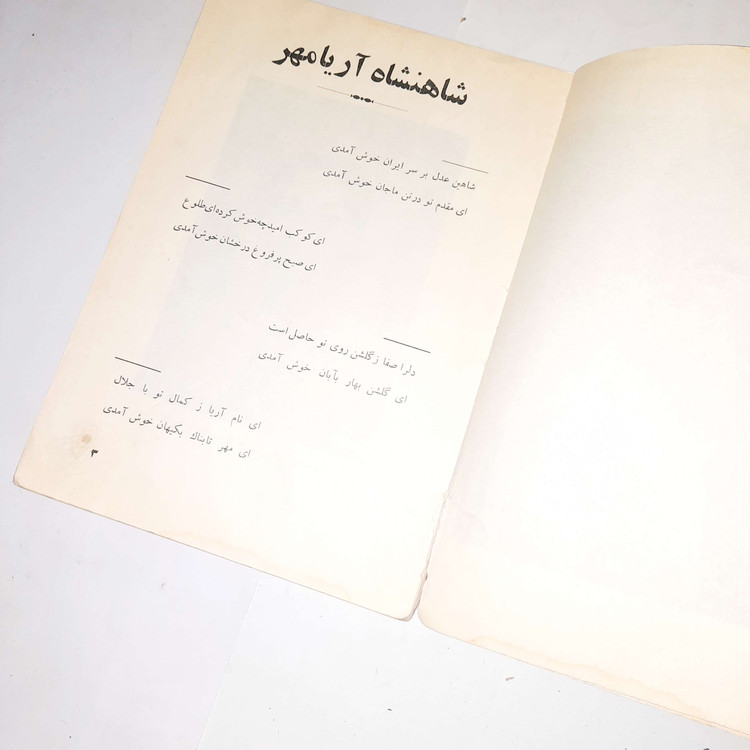 شاهنشاه آریامهر
شاهین عدل بر سر ایران خوش آمدی
ای مقدم تو در تن ماجان خوش آمدی
ای کوکب امیدچه‌خوش کرده‌ای‌طلوع
ای صبح پر فروغ درخشان خوش‌آمدی
دلرا صفا ز گلشن روی تو حاصل است
ای گلشن بهار بآبان خوش آمدی
ای نام آریا ز کمال تو با جلال
ای مهر تابناك بکیهان خوش آمدی
۳